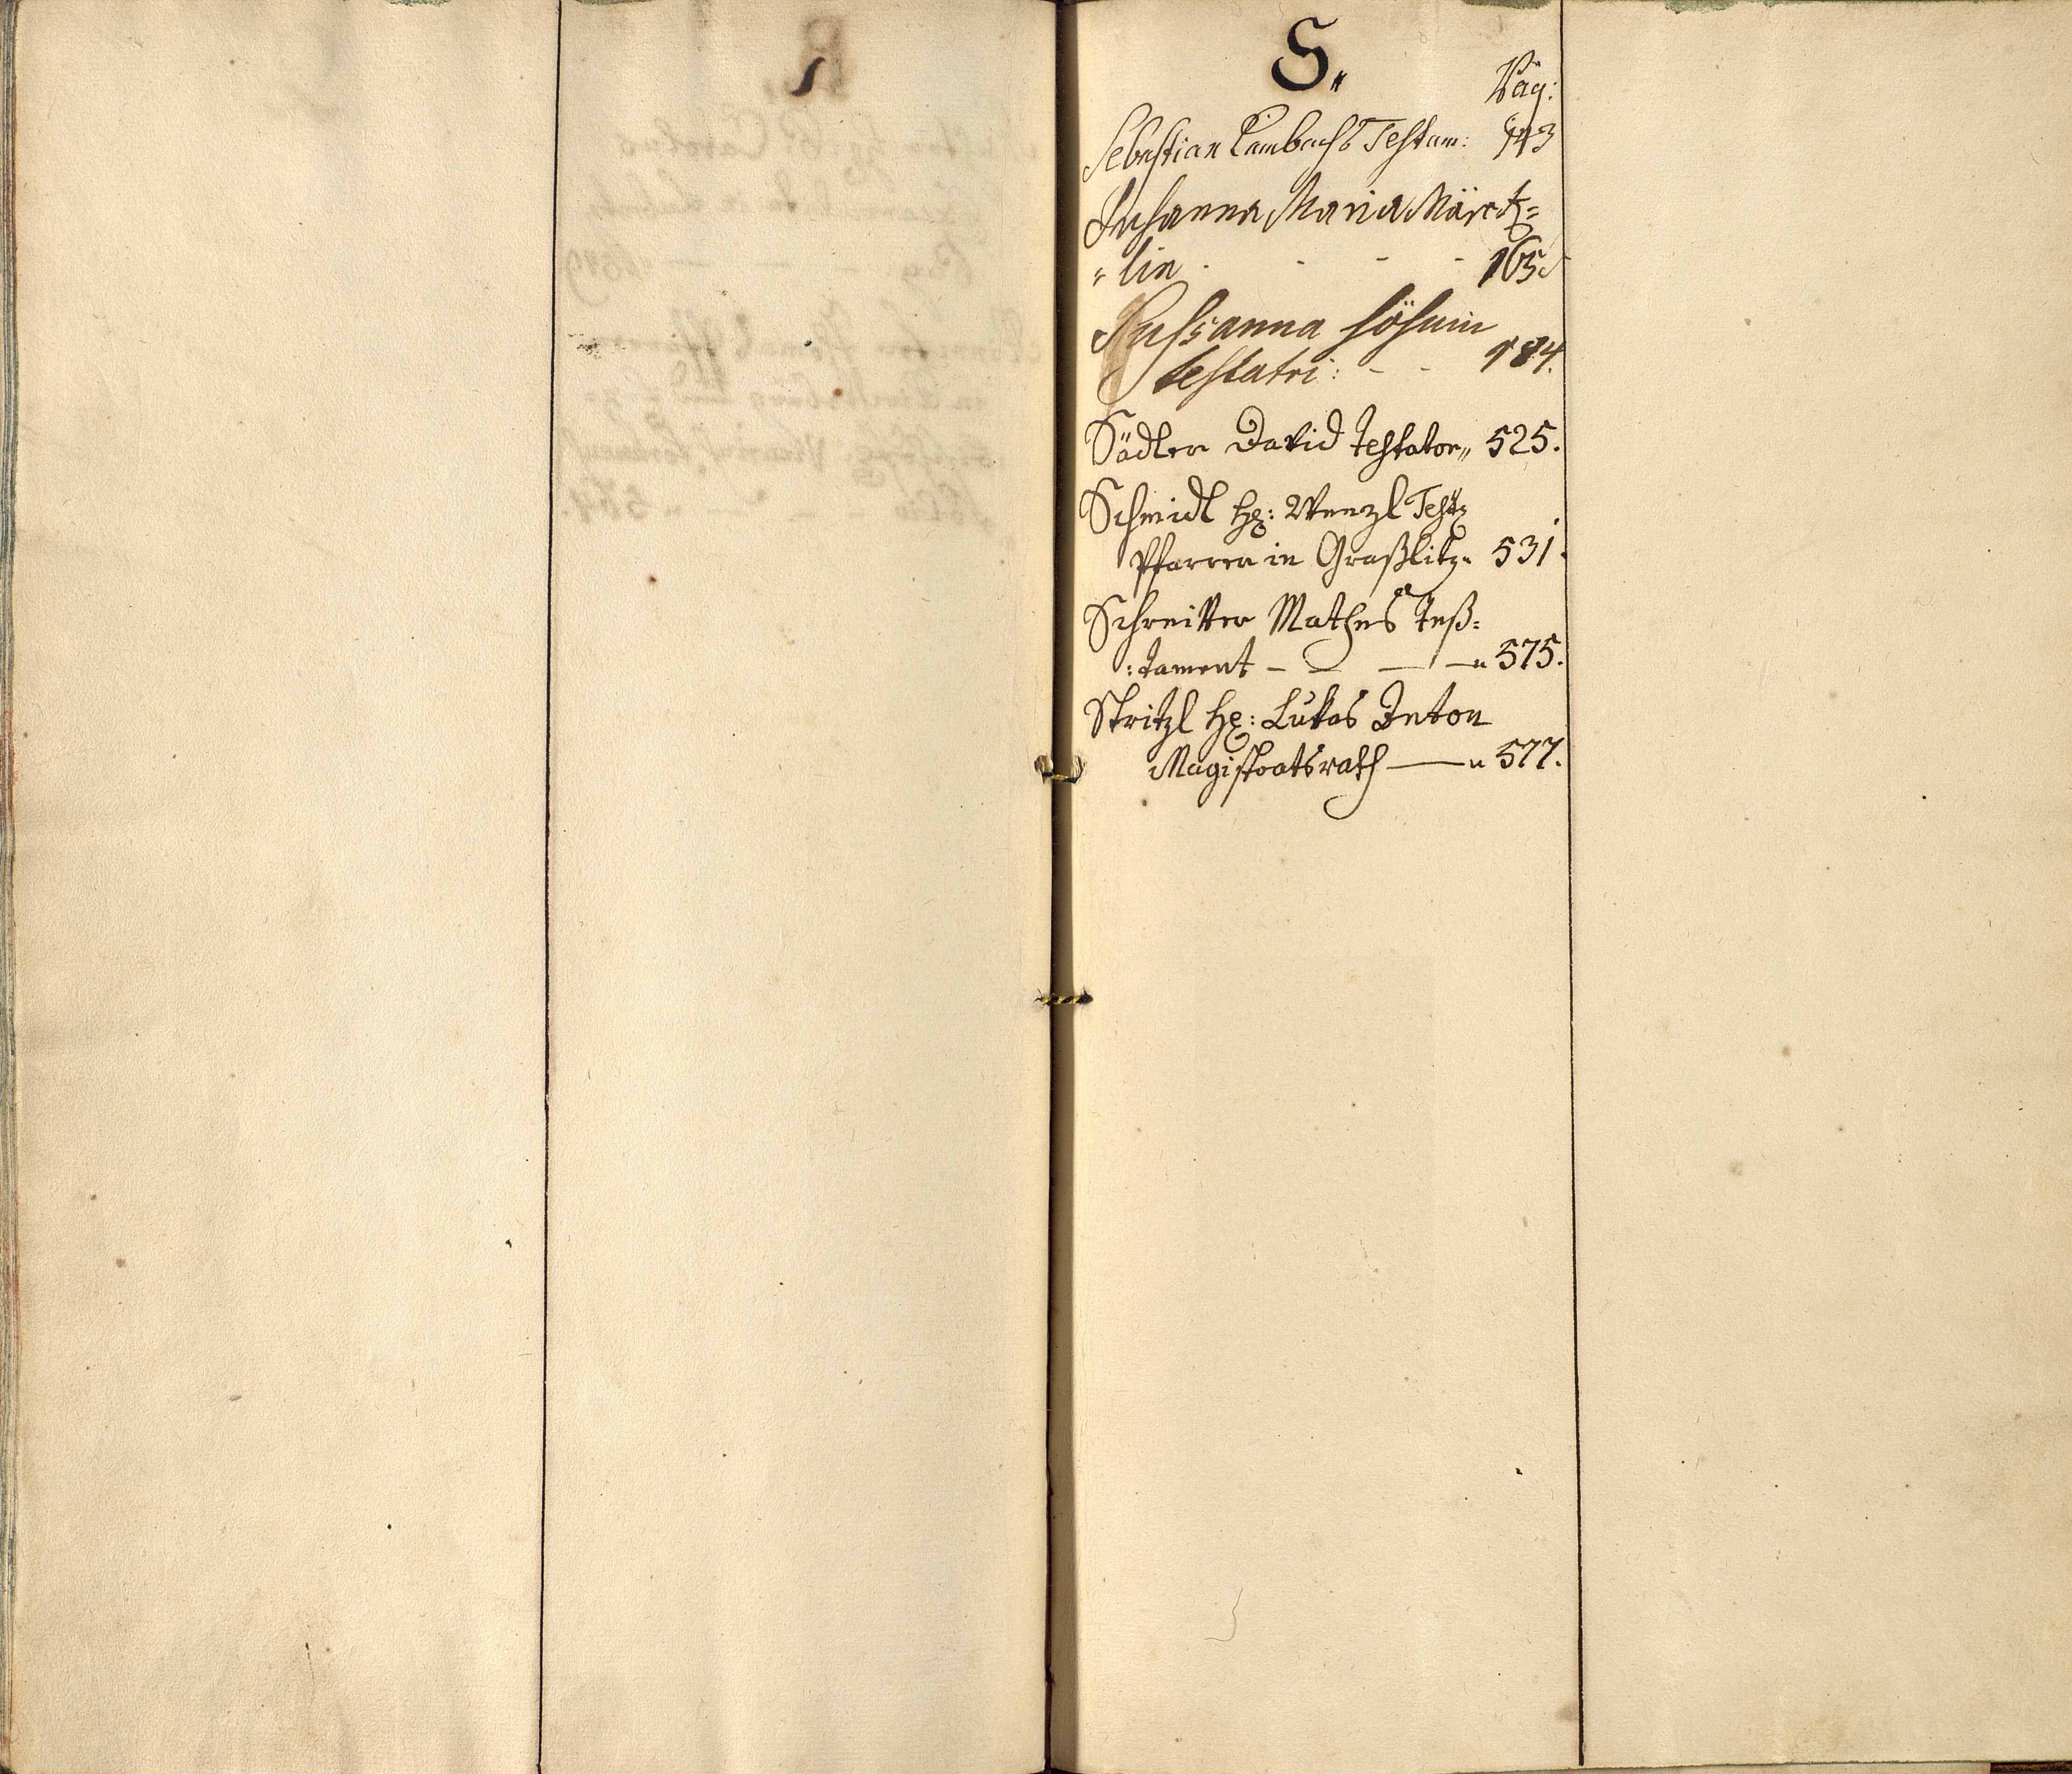 S„
Pag:
Sebastian Lambachs Testam: 143
Susanna Maria Märck=
„lin - - - - 165.
Sussanna
testatri: - - 184.
Sädler David Testator„ 525.
Schmidl H: Wenzl Test
Pfarrer in Graßlitz„ 531.
Schreitter Mathes Teß=
:tament — — — —„ 575.
Stritzl H: Lukas Anton
Magistratsrath ——„ 577.